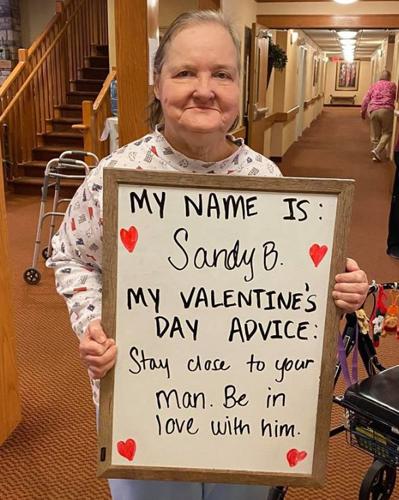 MY NAME IS:
Sandy B.
MY VALENTINE'S
DAY ADVICE:
Stay close to your
man. Be in
love with him.